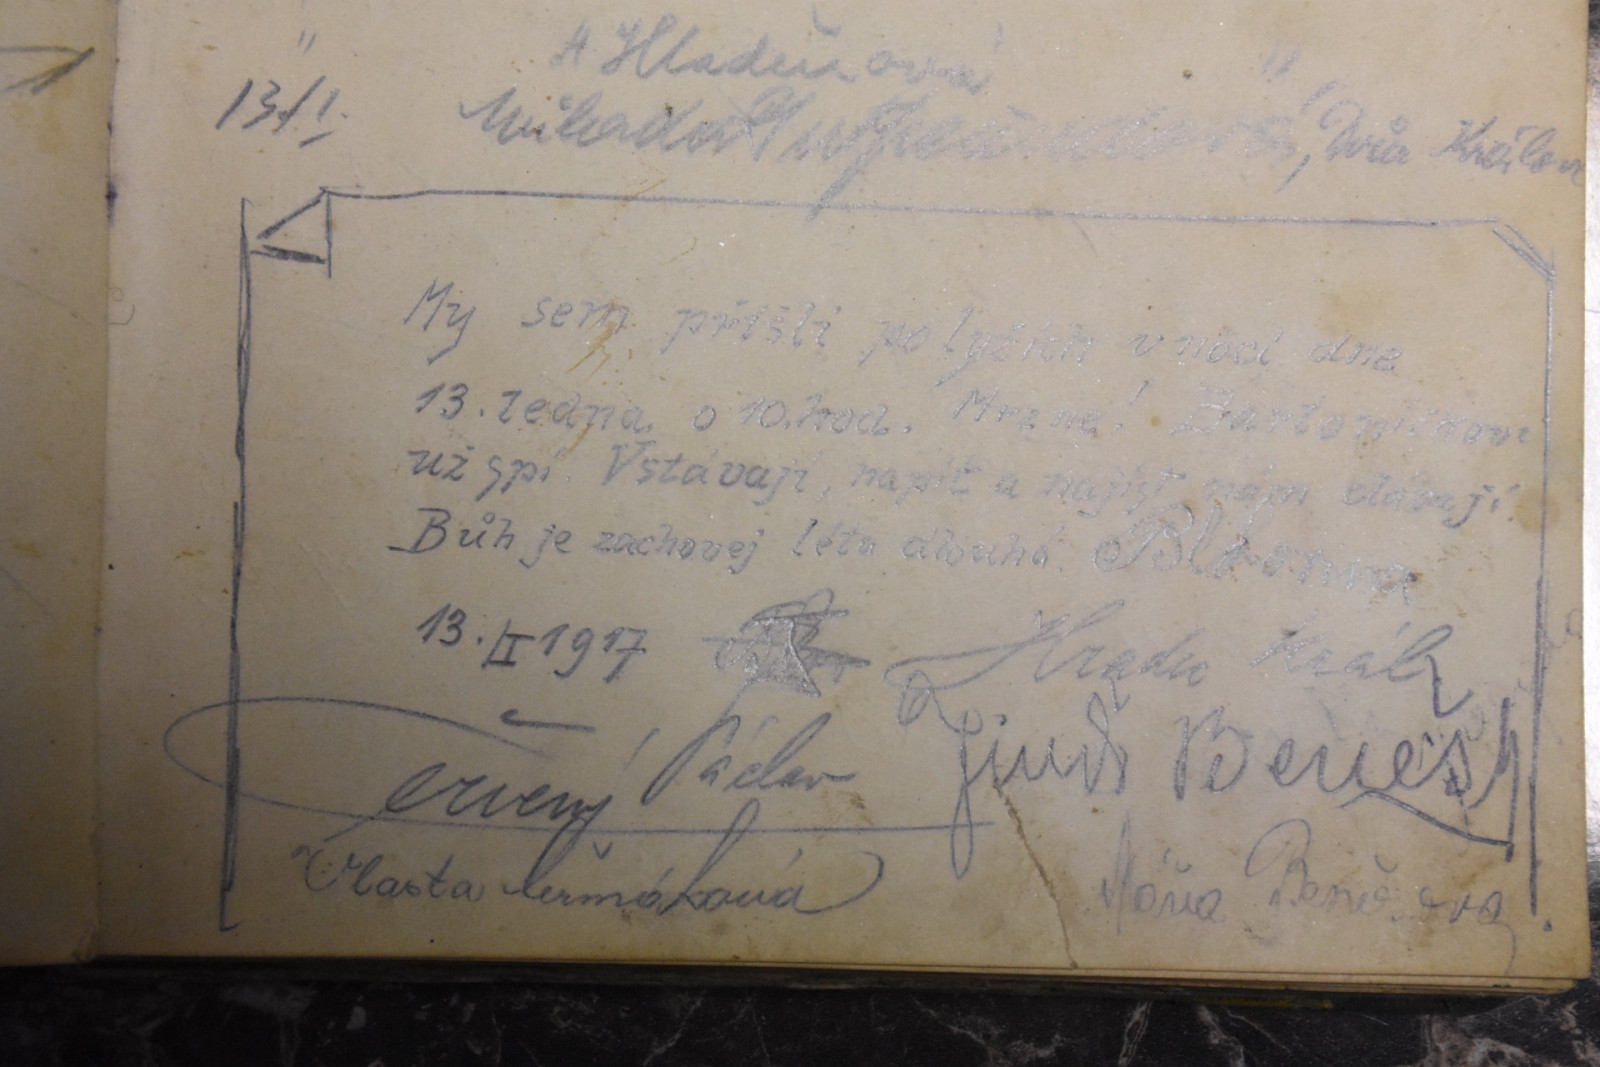 "
A Hladeňová "
13/I. , Dvůr Králov
My sem přišli po lyžích v noci dne
13. ledna o 10.hod. Mrzne! Bartoníčkovi
už spí. Vstávají, napít a najíst nám dávají.
Bůh je zachovej léta dlouhá.
13. II 1917 Hradec Král
Červený Václav Jindř Beneš
Vlasta Čermáková Máňa Benešova.